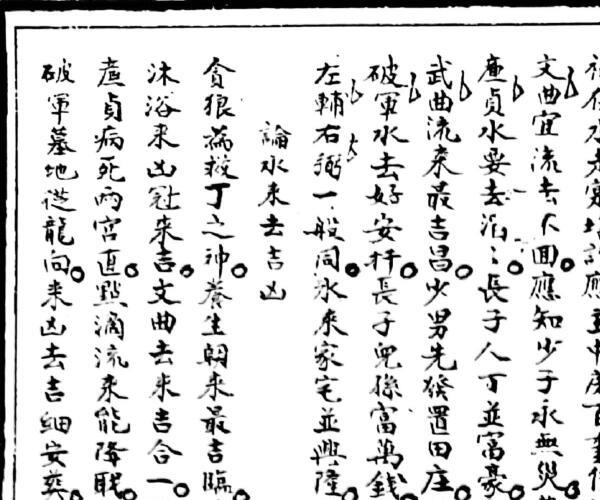 文曲宜流去不回應知少子永無災
廉貞水要去滔〻長子人丁並富豪
武曲流來最吉昌少男先發置田庄
破軍水去好安扦長子兒孫富萬錢
左輔右弼一般同水來家宅並興隆
論水來去吉凶
貪狼為救丁之神養生朝來最吉臨
沐浴來凶冠來吉文曲去來吉合一
廉貞病死兩宮直點滴流來能降
破軍墓地從龍向來凶去吉細安葬